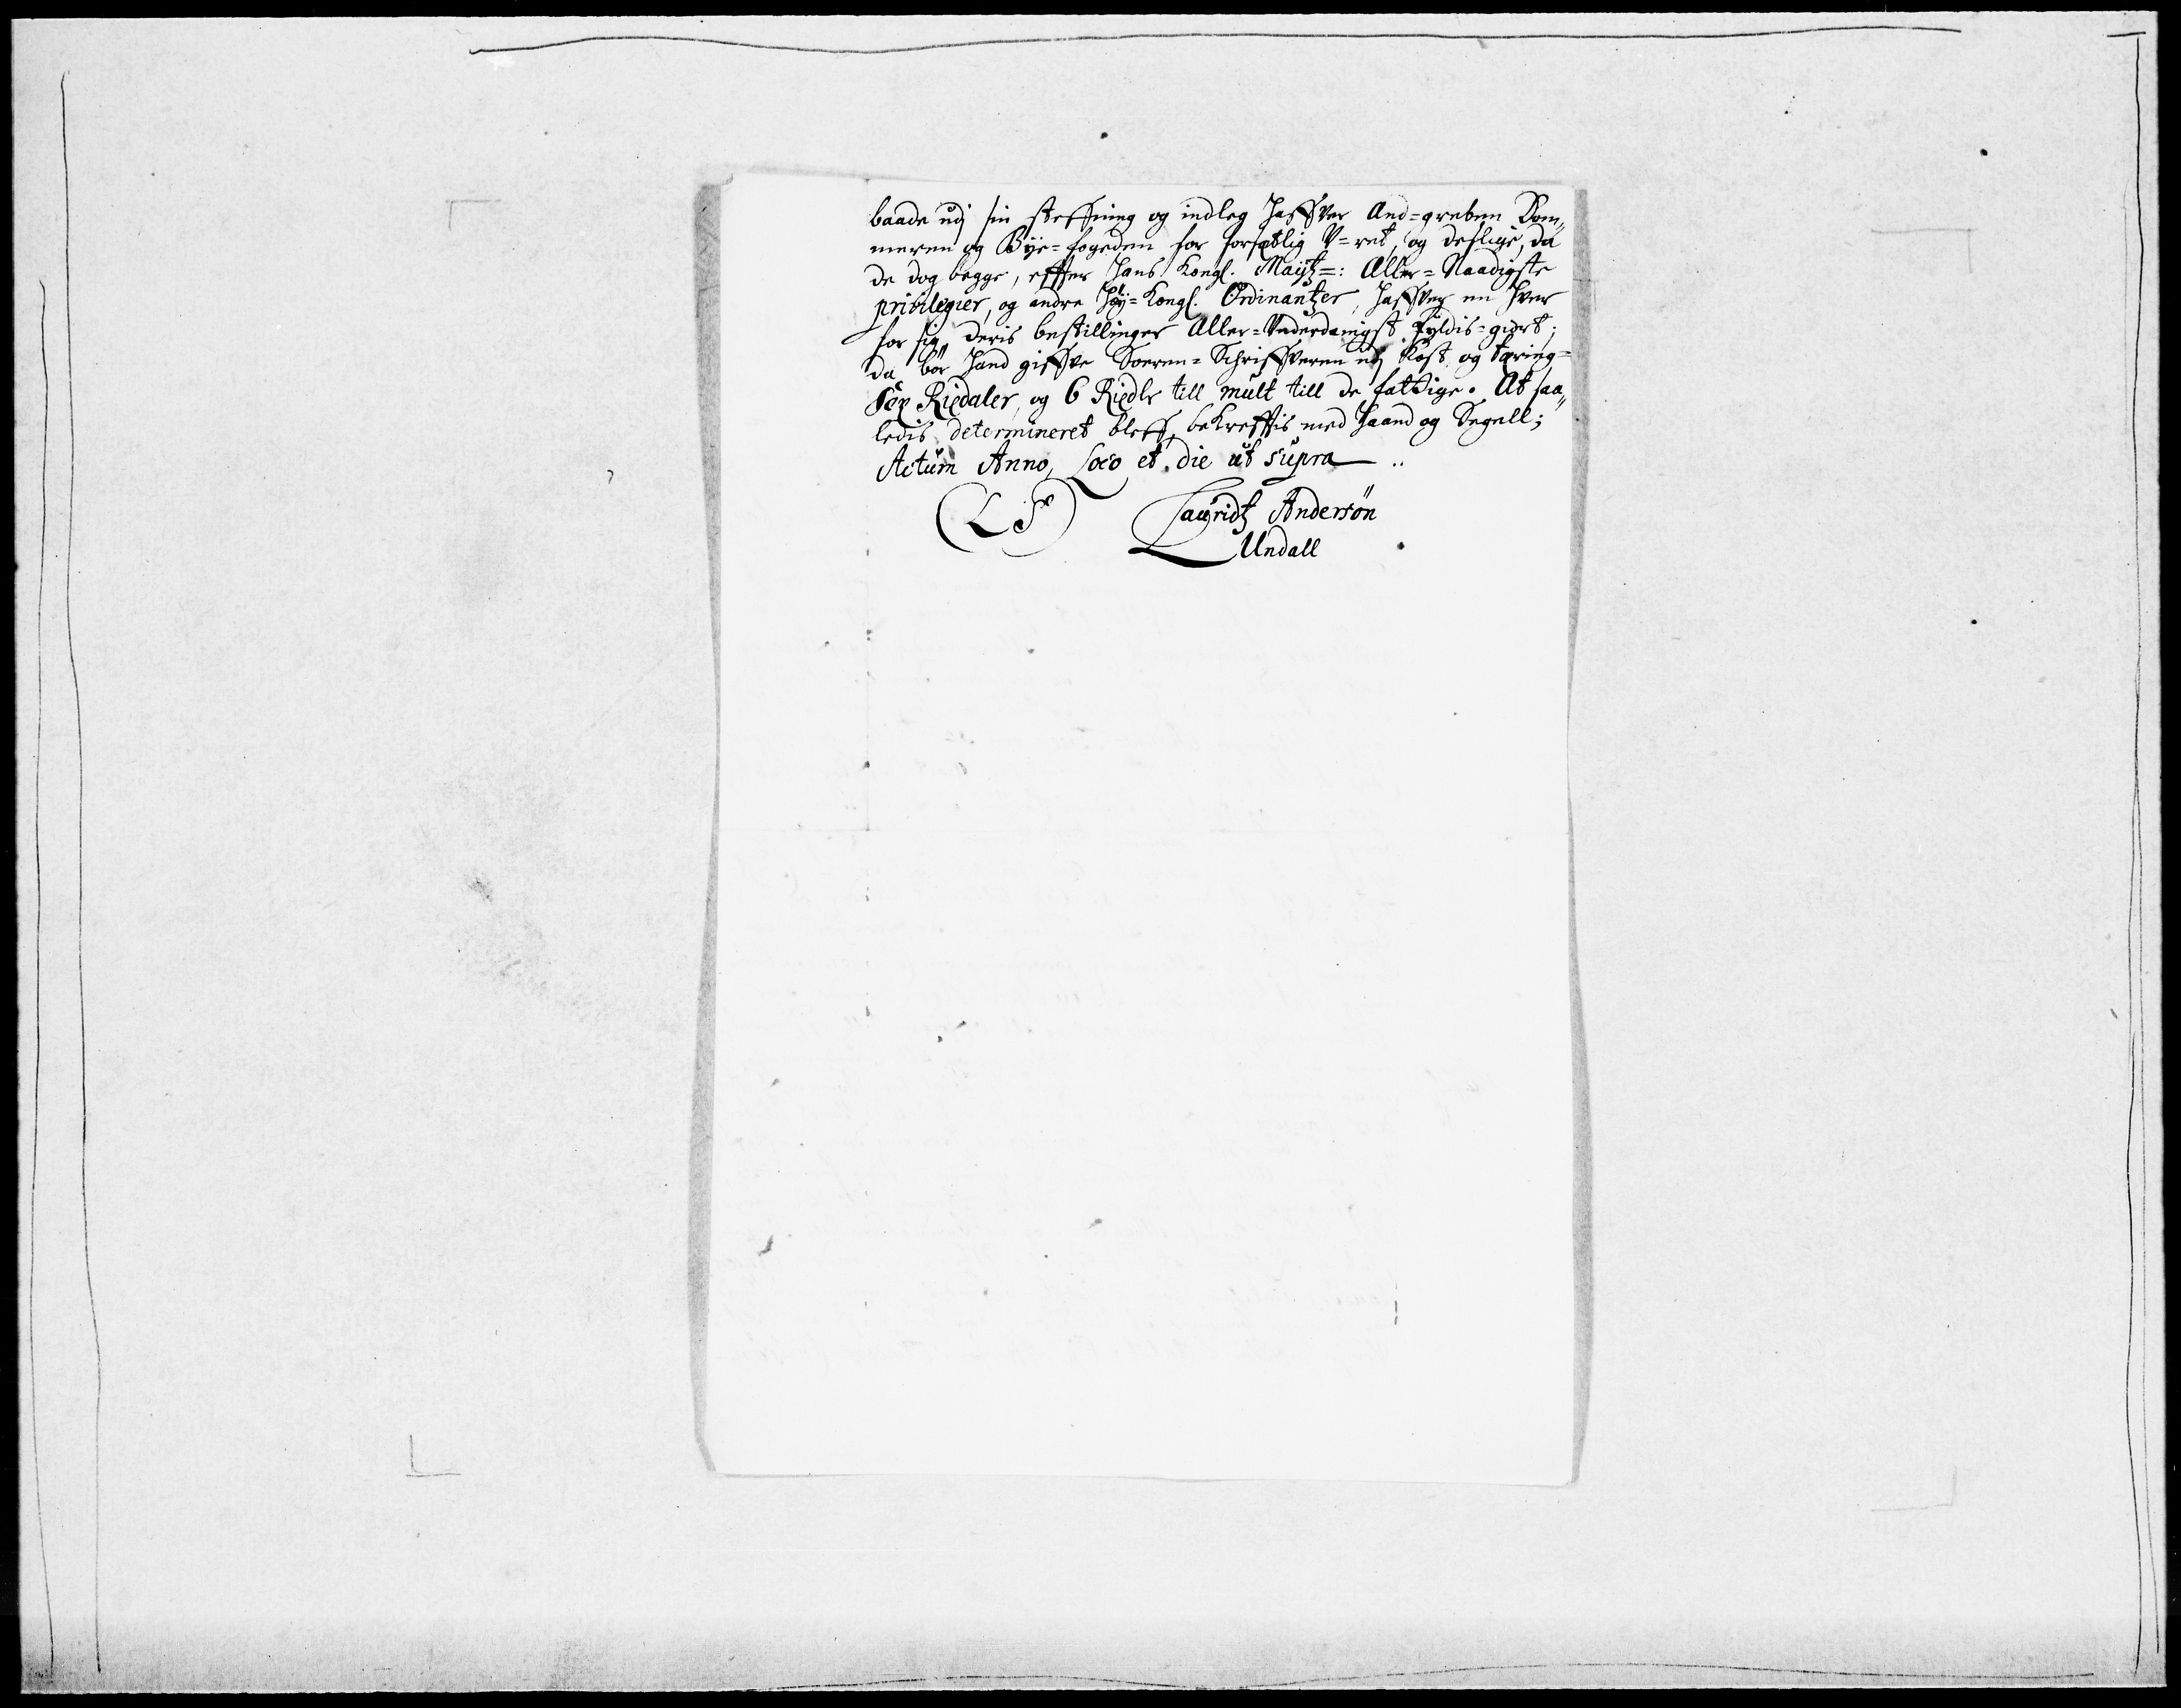 baade udj sin steffning og indleg haffver And=greben Dom„
meren og Bÿe=fogeden for forsætlig V=ret, og deslige, da
de dog begge, effter hans Kongl. Maÿtz=: Aller=Naadigste
privilegier, og andre Høÿ=Kongl. Ordinantzer, haffver en hver
for sig deris bestillinger Aller=Vnderdanigst fÿldis=giort;
da bör hand giffve Soren=Schriffveren udj Kost og tæring=
Sex Riedaler, og 6 Riedlr till mult till de fattige. At saa„
ledis determineret bleff, bekrefftis med haand og Segell;
Actum Anno, Loco et die ut supra ..
(L S) Lauridtz Andersön
Undall